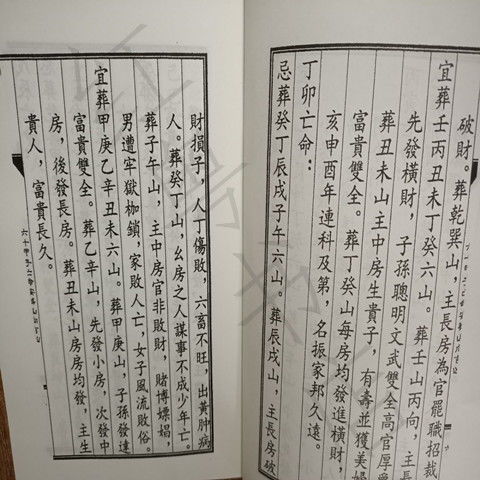 破財。葬乾巽山，主長房為官罷職招裁
宜葬壬丙丑未丁癸六山。葬壬山丙向，主長
先發橫財，子孫聰明文武雙全高官厚
葬丑未山主中房生貴子，有壽並獲美
富貴雙全。葬丁癸山每房均發進橫財，
亥申酉年連科及第，名振家邦久遠。
丁卯亡命：
忌葬癸丁辰戌子午六山。葬辰戌山，主長房破
財損子，人丁傷敗，六畜不旺，出黃肿病
人。葬癸丁山，幺房之人謀事不成少年亡。
葬子午山，主中房官非敗財，賭博嫖娼，
男遭牢獄枷鎖，家敗人亡，女子風流敗俗。
宜葬甲庚乙辛丑未六山。葬甲庚山，子孫發達
富貴雙全。葬乙辛山，先發小房，次發中
房，後發長房。葬丑未山房房均發，主生
貴人，富貴長久。